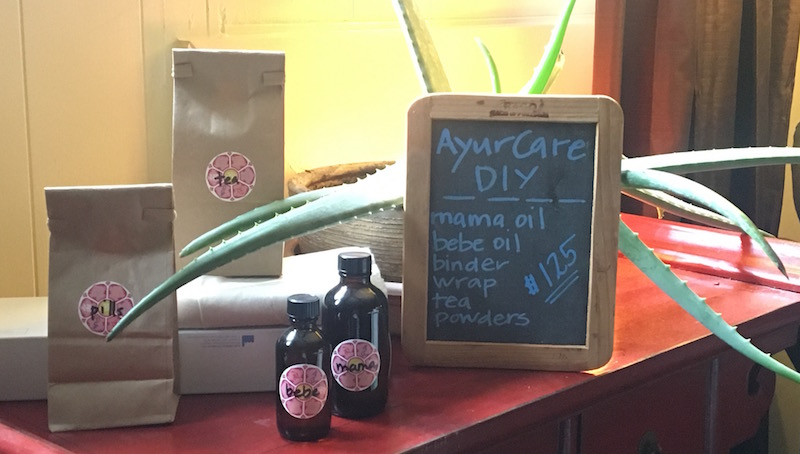 tea
pills
bebe
mama
AyurCare
DIY
mama oil
bebe oil
binder
wrap
tea
powders
$125